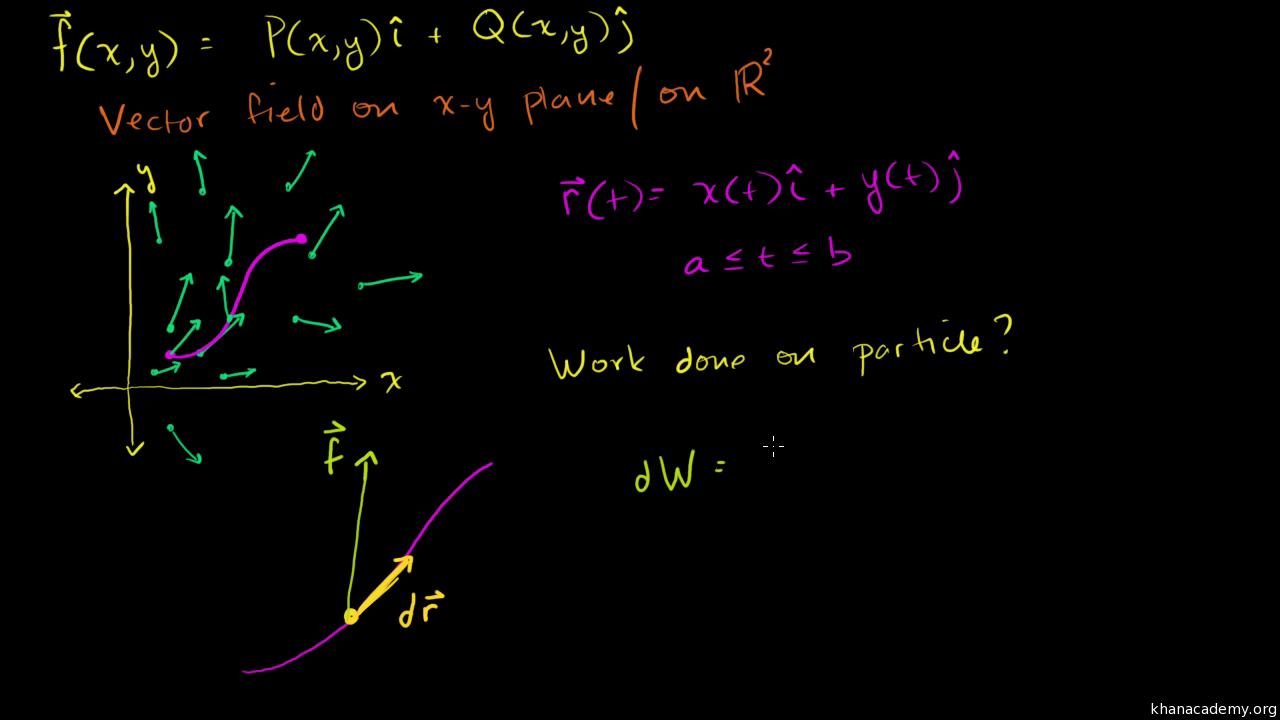 f⃗(x,y) = P(x,y)î + Q(x,y)ĵ
Vector field on x-y plane / on ℝ²
y
r⃗(t) = x(t)î + y(t)ĵ
a ≤ t ≤ b
Work done on particle?
x
f⃗
dW =
dr⃗
khanacademy.org